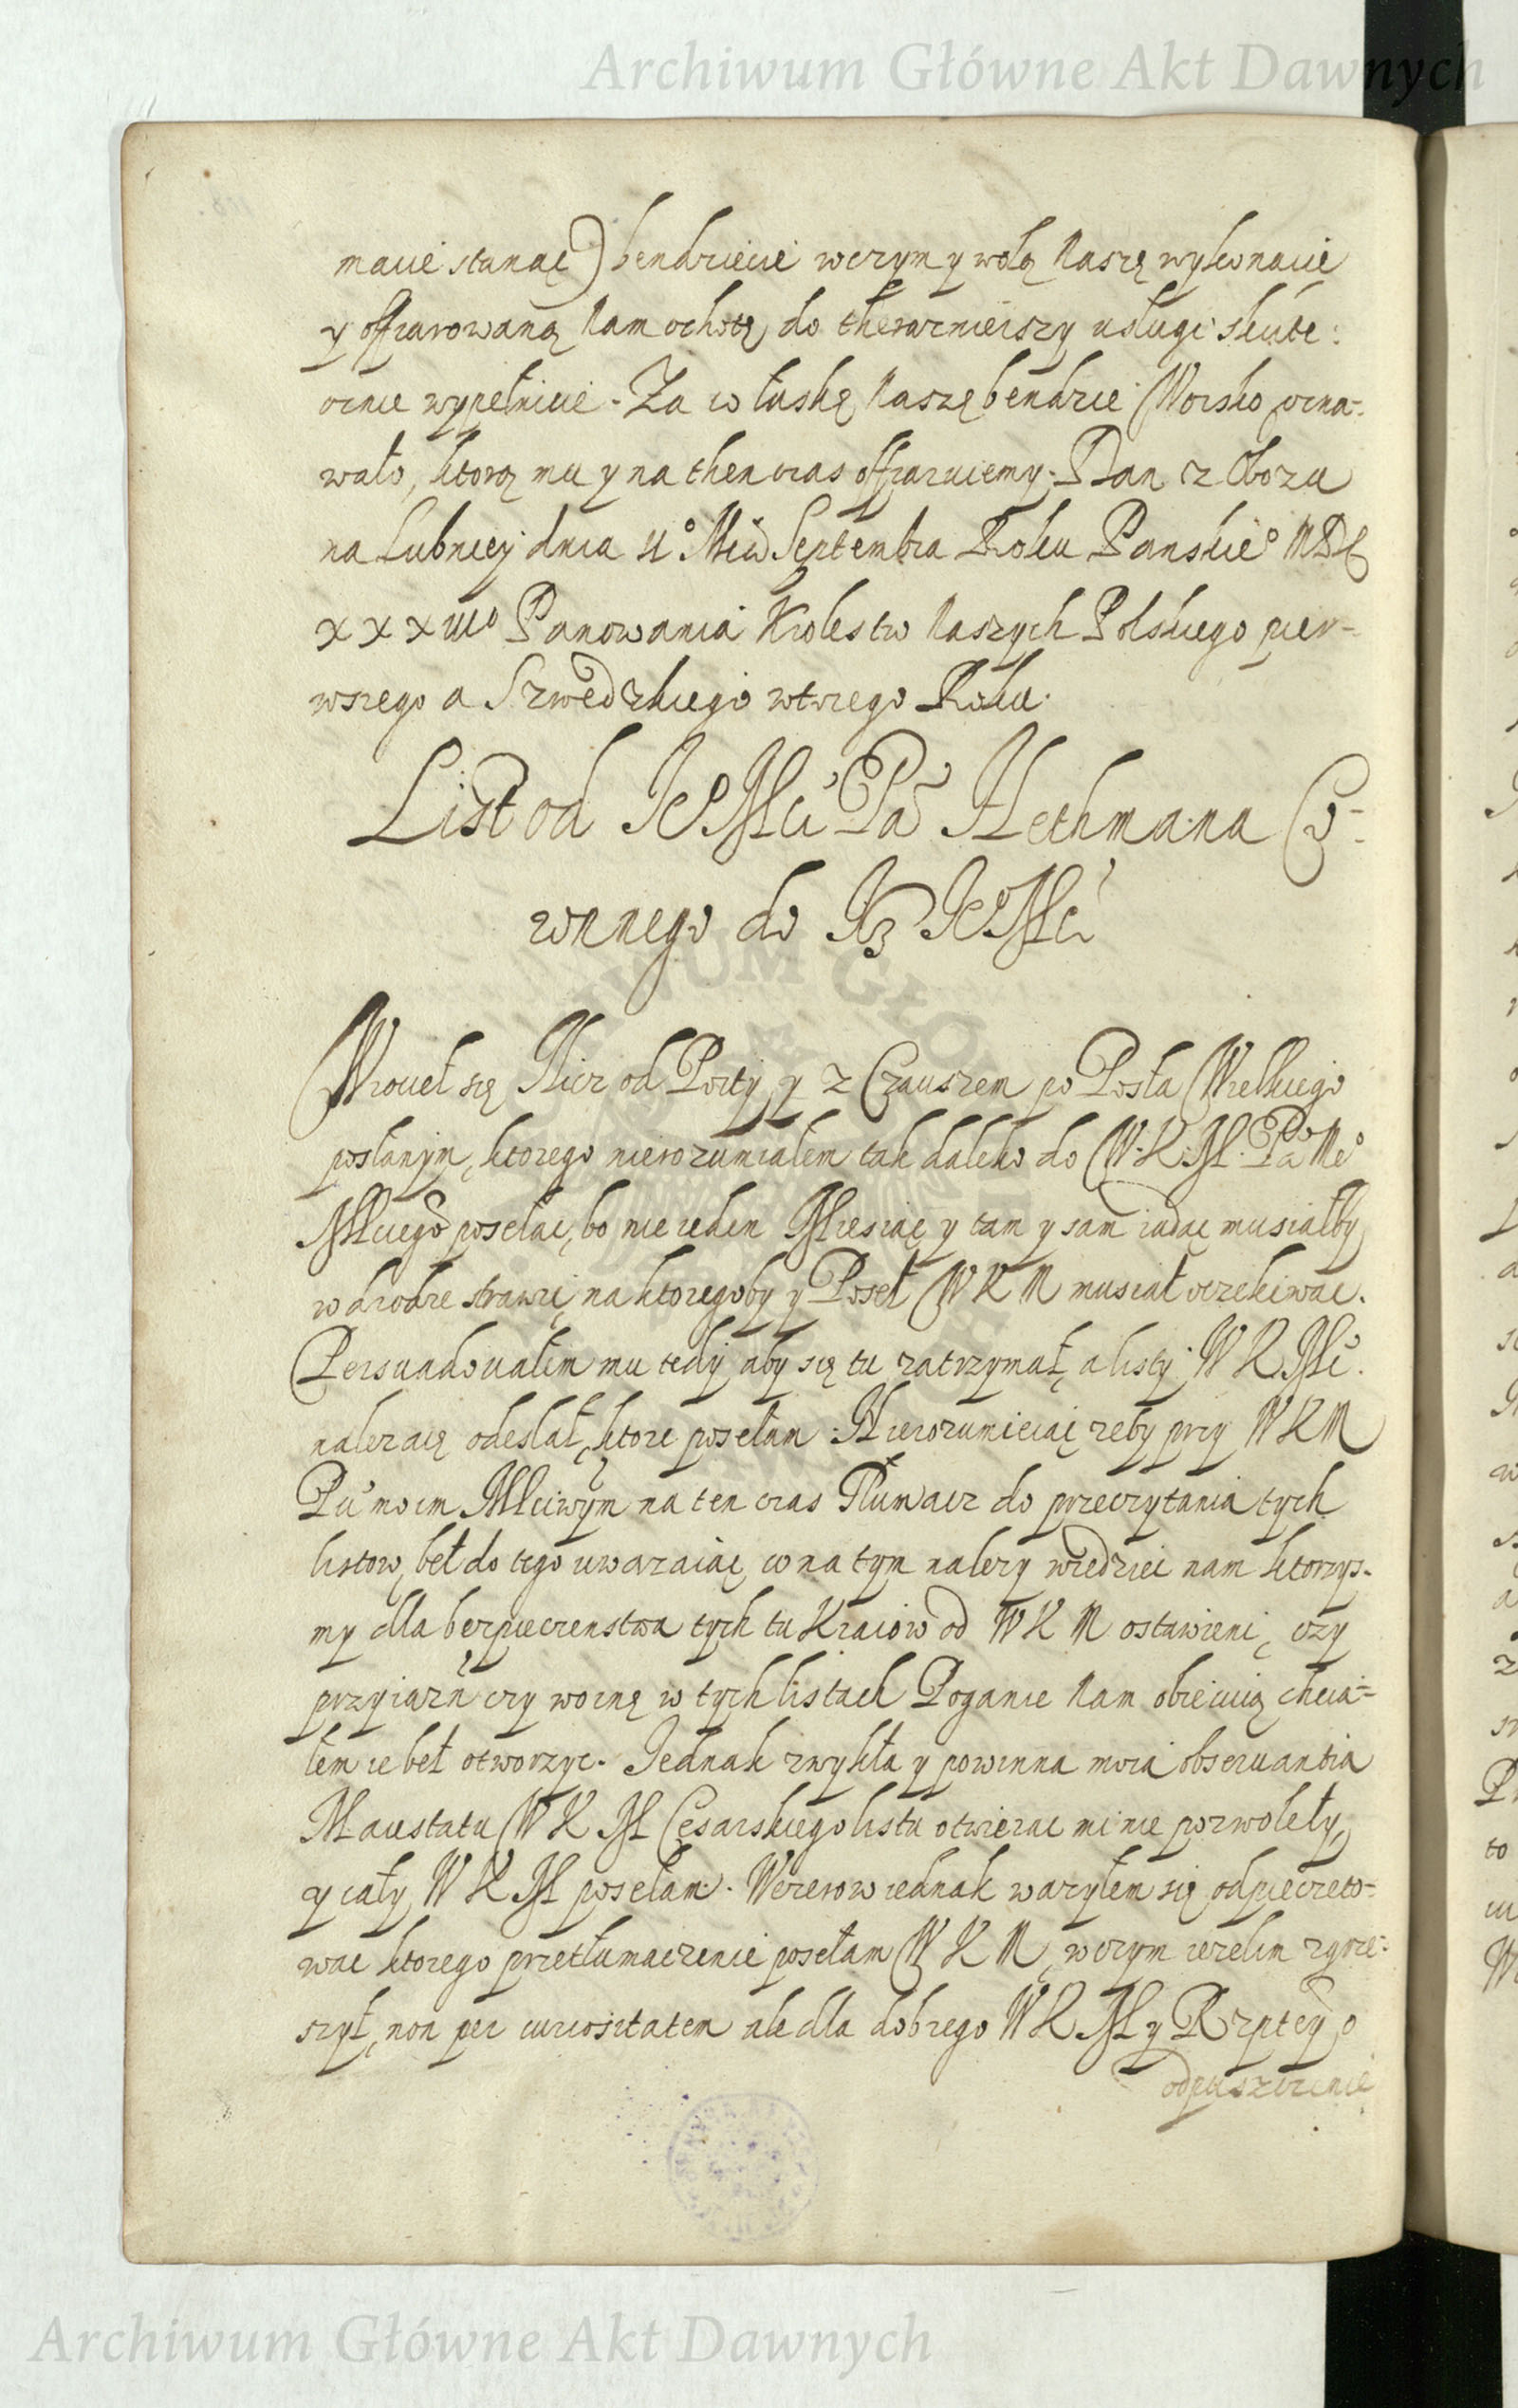 Archiwum Główne Akt Dawnych
macie stanąć) bendziecie w czym y wolą Naszę wykonacie
y offiarowaną Nam ochotę do theraznieiszy usługi skute:
cznie wypełnicie. Za co łaskę Naszę bendzie Woisko ozna-
wało, ktorą mu y na then czas offiaruiemy. Dan z Obozu
na Lubniey dnia 4º Mca Septembra Roku Panskieº MDC
XXXIIIº Panowania Krolestw Naszych Polskiego pier-
wszego a Szwedzkiego wtorego Roku.
List od JeMści Pa Hethmana Co-
ronnego do JeMści
Wrocieł się Kicz od Porty y z Czauszem po Posła Wielkiego
posłanym, ktorego nierozumialem tak daleko do W. K. M. Pa Meº
Mściwego posełac, bo nie ieden Miesiąc y tam y sam iadąc musiałby
w drodze strawić, na ktoregoby y Poseł W K M musiał oczekiwac.
Persuadowałem mu tedy aby się tu zatrzymał, a listy W K Mści.
należacę odesłał, ktore posełam. Nierozumieiąc zeby przy W K M
Pu moim Mściwym na ten czas Tłumacz do przeczytania tych
listow beł do tego uwazaiąc, co na tym nalezy wiedziec nam ktorzys-
my dla bezpieczenstwa tych tu Kraiow od W K M ostawieni, czy
przyiazń czy woinę w tych listach Poganie Nam obiecuią chcia-
łem ie beł otworzyc. Jednak zwykła y powinna moia obseruantia
Maiestatu W K M Cesarskiego listu otwierac mi nie pozwoleły,
y cały W K M posełam. Wezerow iednak wazyłem się odpieczęto-
wac ktorego przetłumaczenie posełam W K M, w czym iezelim zgrze-
szył, non per curiositatem ale dla dobrego W K M y Rzptey o
odpuszczenie
Archiwum Główne Akt Dawnych